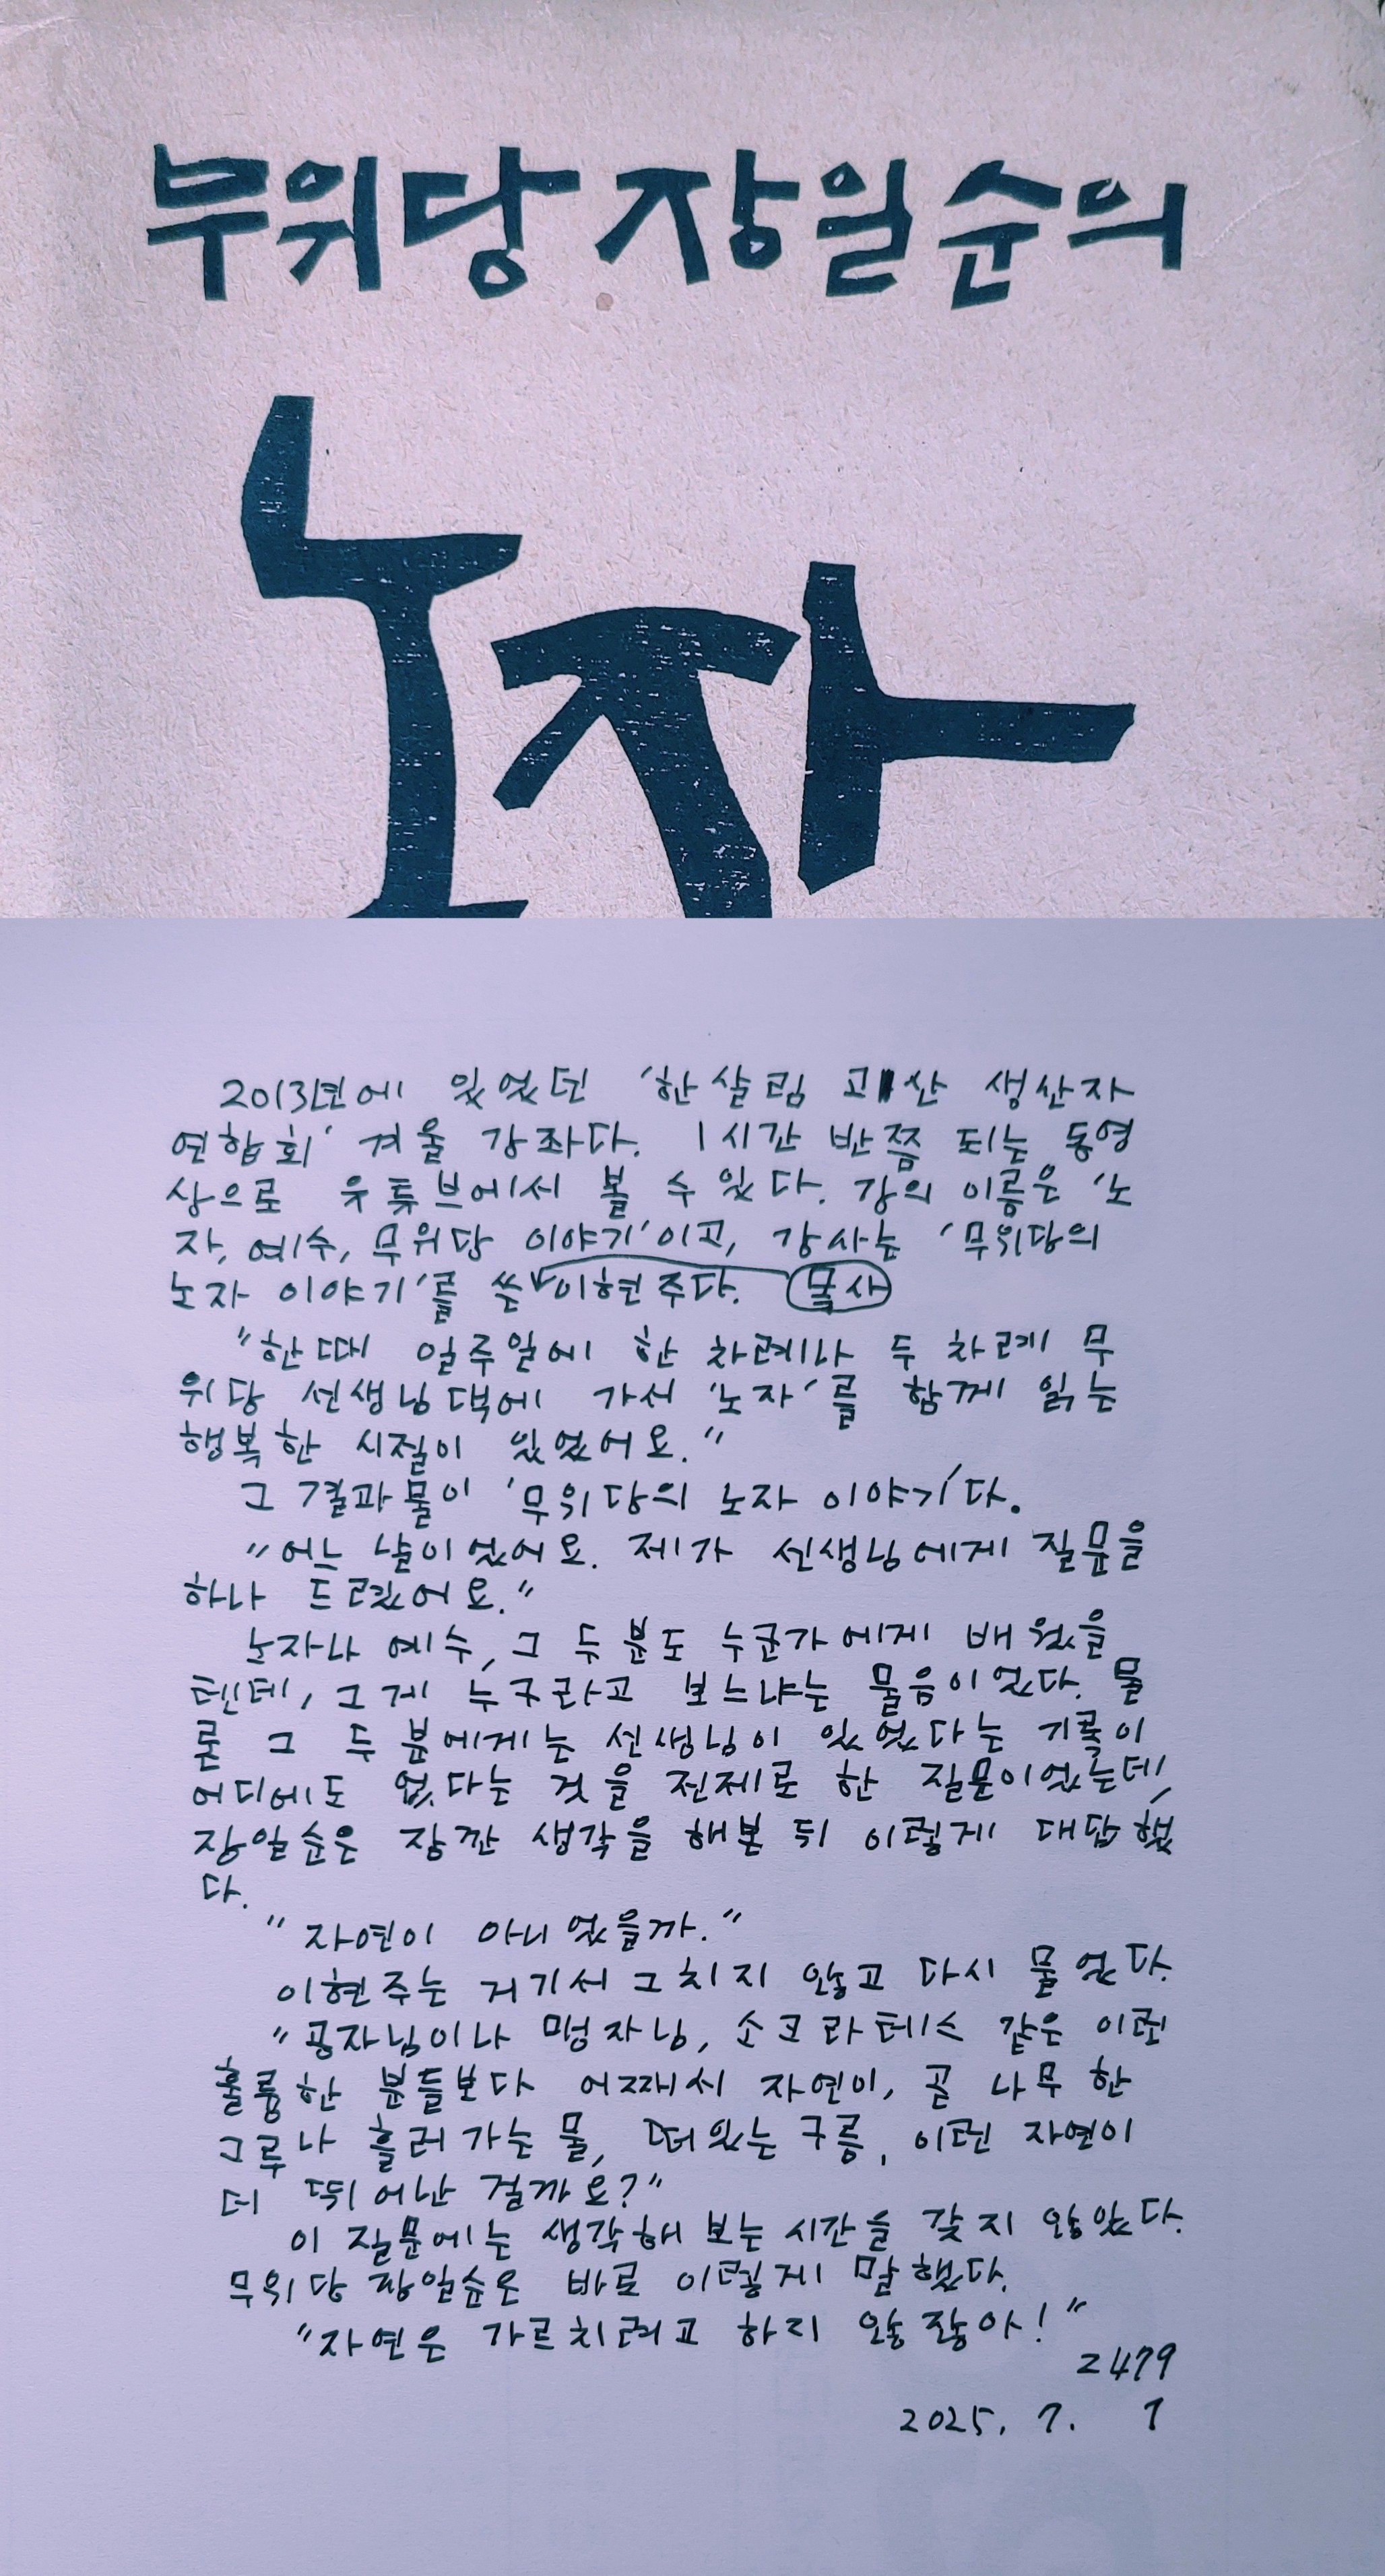 무위당 장일순의
노자
2013년에 있었던 '한살림 괴산 생산자
연합회' 겨울 강좌다. 1시간 반쯤 되는 동영
상으로 유튜브에서 볼 수 있다. 강의 이름은 '노
자, 예수, 무위당 이야기'이고, 강사는 '무위당의
노자 이야기'를 쓴 이현주다. 목사
"한때 일주일에 한 차례나 두 차례 무
위당 선생님댁에 가서 '노자'를 함께 읽는
행복한 시절이 있었어요."
그 결과물이 '무위당의 노자 이야기'다.
"어느 날이었어요. 제가 선생님에게 질문을
하나 드렸어요."
노자나 예수, 그 두 분도 누군가에게 배웠을
텐데, 그게 누구라고 보느냐는 물음이었다. 물
론 그 두 분에게는 선생님이 있었다는 기록이
어디에도 없다는 것을 전제로 한 질문이었는데,
장일순은 잠깐 생각을 해본 뒤 이렇게 대답했
다.
"자연이 아니었을까."
이현주는 거기서 그치지 않고 다시 물었다.
"공자님이나 맹자님, 소크라테스 같은 이런
훌륭한 분들보다 어째서 자연이, 곧 나무 한
그루나 흘러가는 물, 떠있는 구름, 이런 자연이
더 뛰어난 걸까요?"
이 질문에는 생각해 보는 시간을 갖지 않았다.
무위당 장일순은 바로 이렇게 말했다.
"자연은 가르치려고 하지 않잖아!"
2479
2025. 7. 7